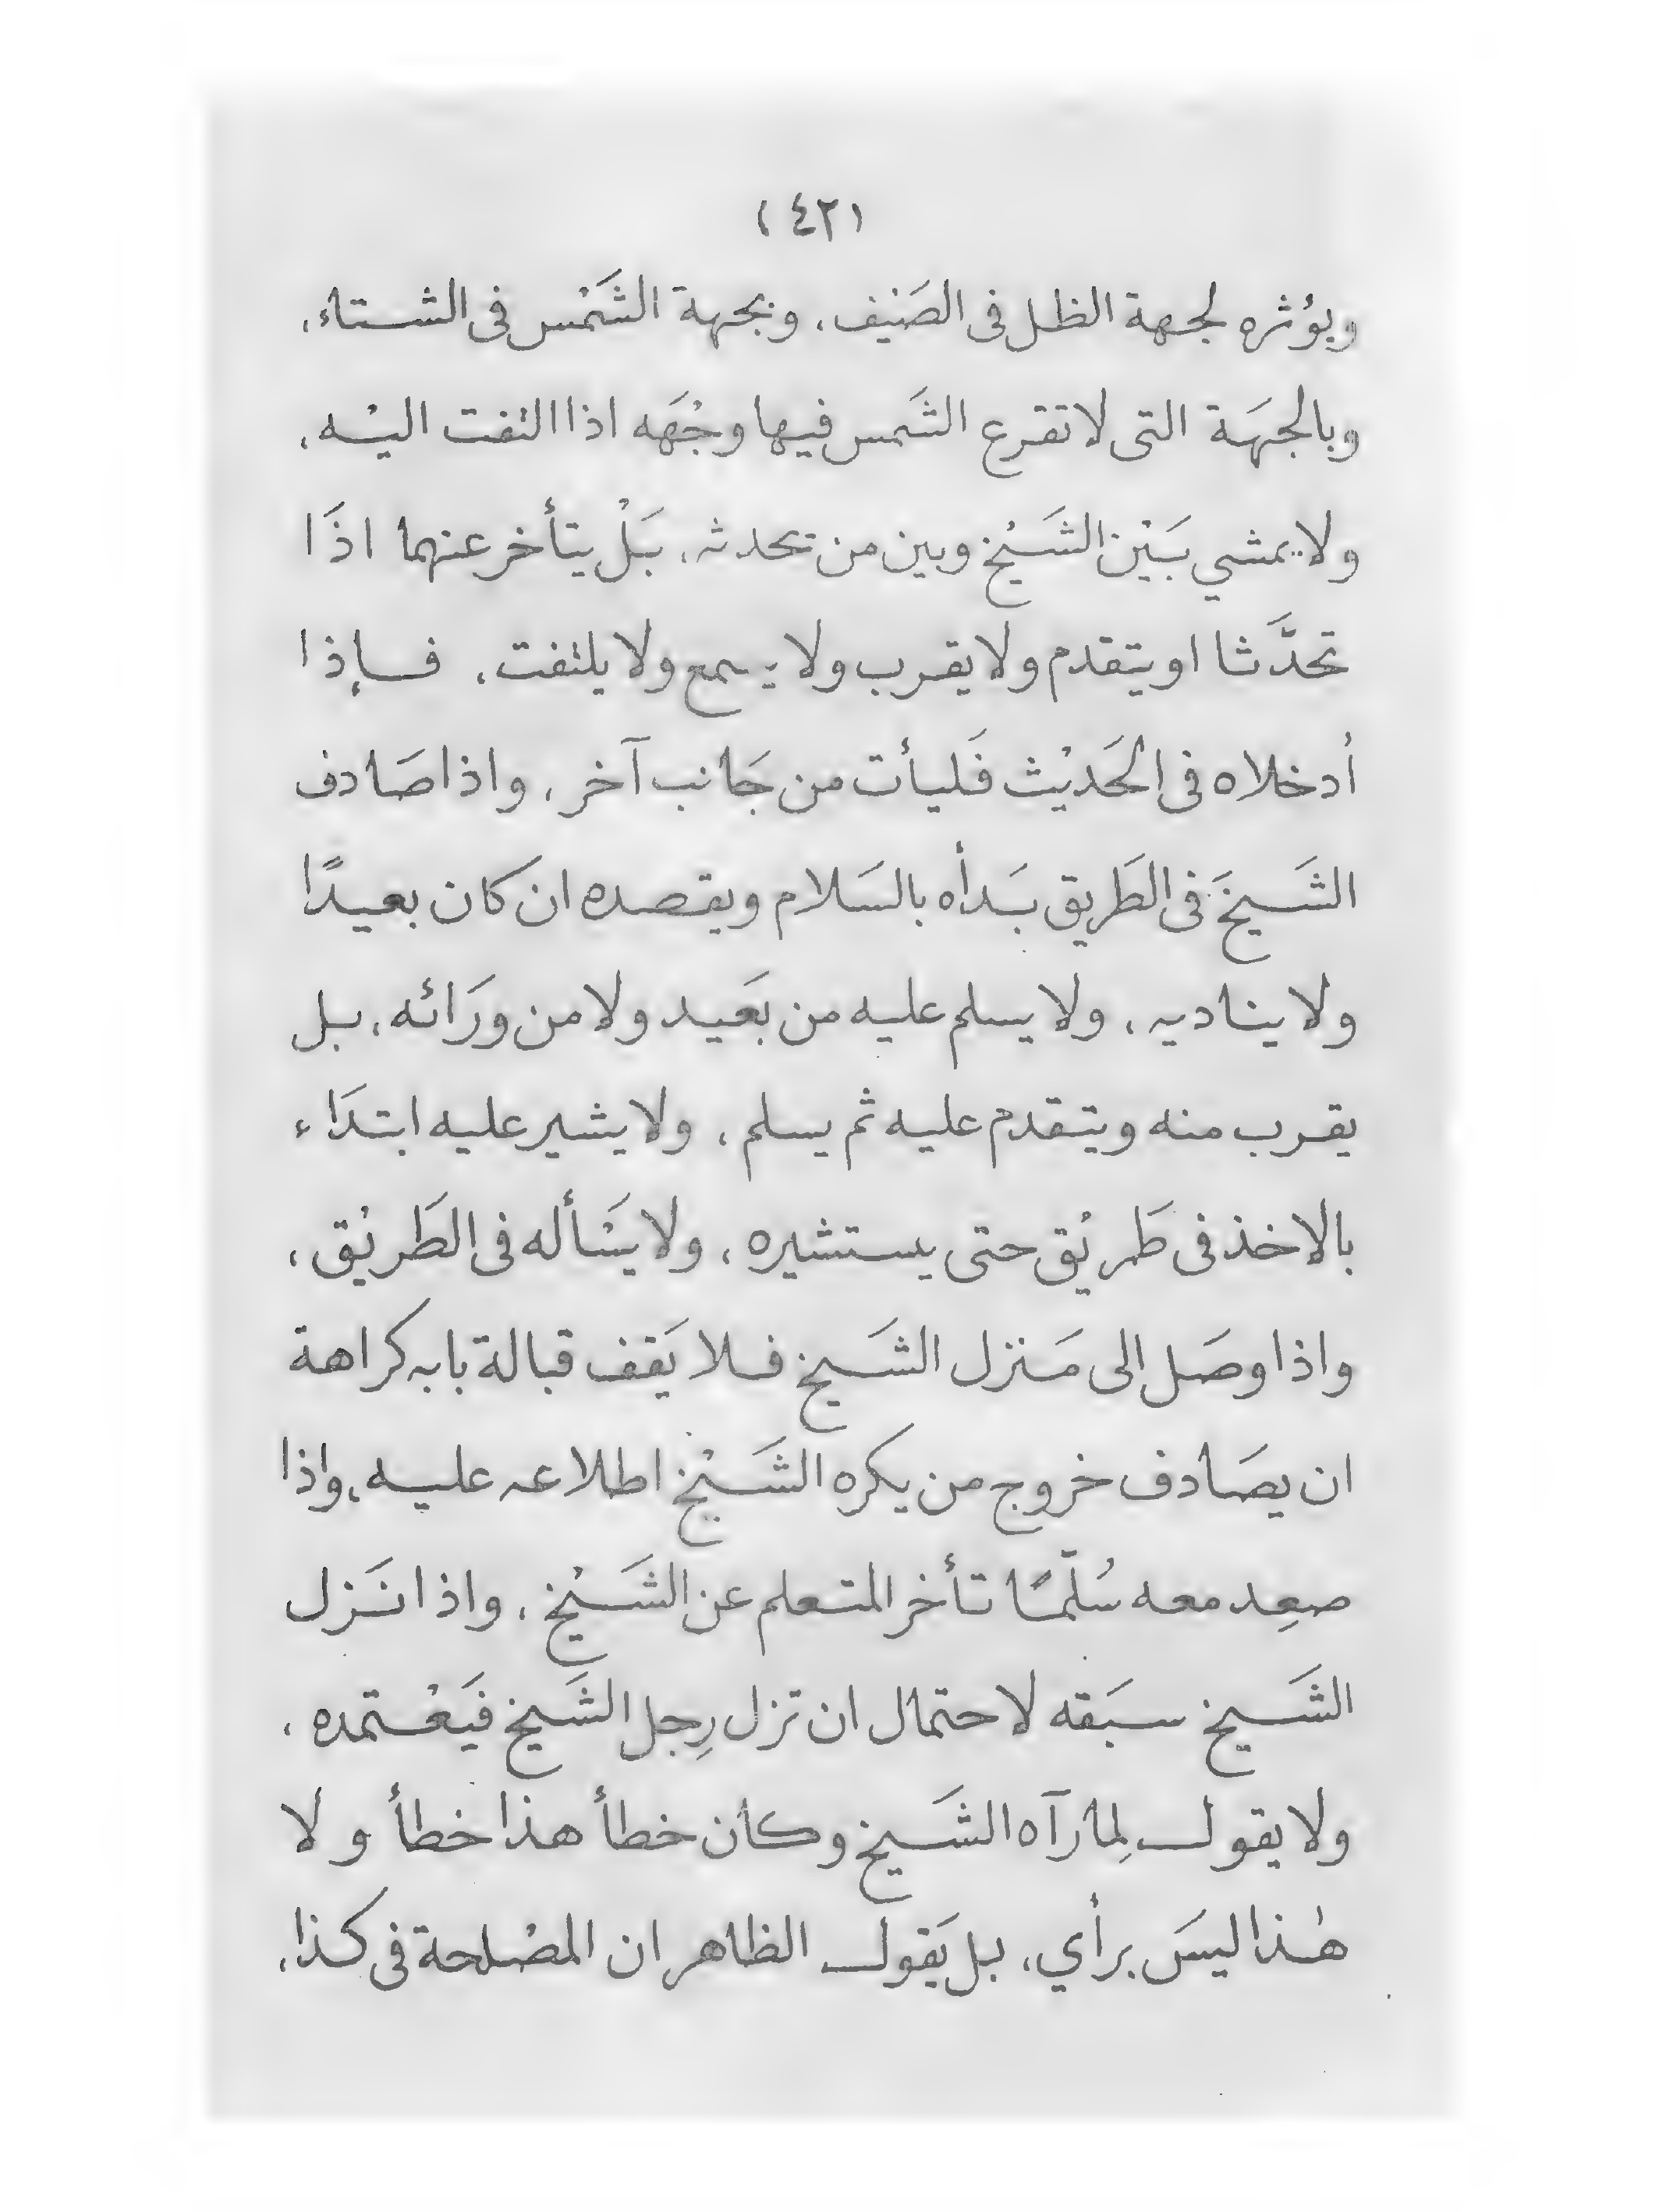 (٤٢)
ويؤثره لجهة الظل فى الصَيْف، وبجهة الشَمْس فى الشتاء،
وبالجهَة التى لا تقرع الشَمس فيها وجْهَه اذا التفت اليْه،
ولا يمشي بَيْن الشَيْخ وبين من تحدثه، بَلْ يتأخر عنهما اذَا
تحدَّثا او يتقدم ولا يقرب ولا يسمع ولا يلتفت، فإذا
أدخلاه فى الحَديْث فَليأت من جَانب آخر، واذا صَادف
الشَيخَ فى الطَريق بَدأه بالسَلام ويقصده ان كان بعيدًا
ولا يناديه، ولا يسلم عليه من بَعيد ولا من ورَائه، بل
يقرب منه ويتقدم عليه ثم يسلم، ولا يشير عليه ابتدَاء
بالاخذ فى طَريْق حتى يستشيره، ولا يسْأله فى الطَريْق،
واذا وصَل إلى مَنزل الشَيخ فلا يَقف قبالة بابه كراهة
ان يصَادف خروج من يكره الشَيْخ اطلاعه عليه، واذا
صعِد معه سُلّمًا تأخر المتعلم عن الشَيْخ، واذا نَزل
الشَيخ سبَقه لاحتمال ان تزل رِجل الشَيخ فيَعْتمده،
ولا يقول لِما رآه الشَيخ وكان خطأ هذا خطأ ولا
هٰذا ليسَ برأي، بل يَقول الظاهر ان المصْلحة فى كذا،